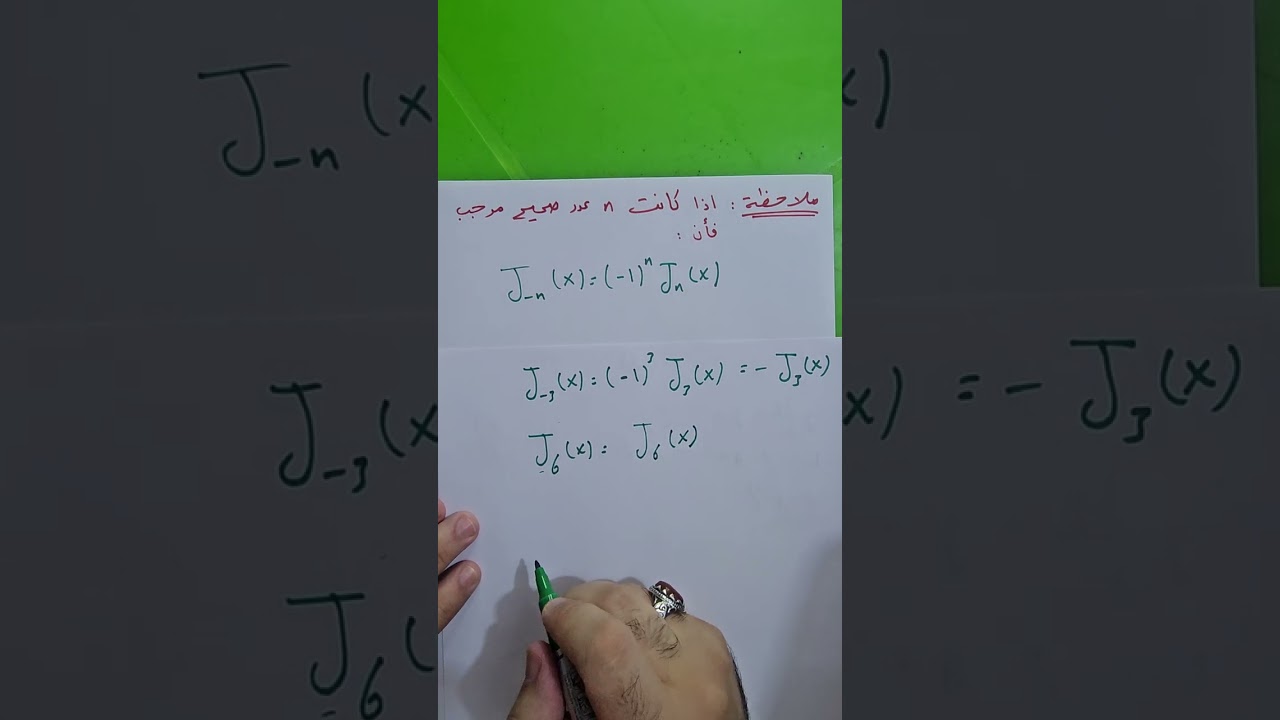 ملاحظة : اذا كانت n عدد صحيح موجب
فأن :
J₋ₙ(x) = (-1)ⁿ Jₙ(x)
J₋₃(x) = (-1)³ J₃(x) = - J₃(x)
J₋₆(x) = J₆(x)